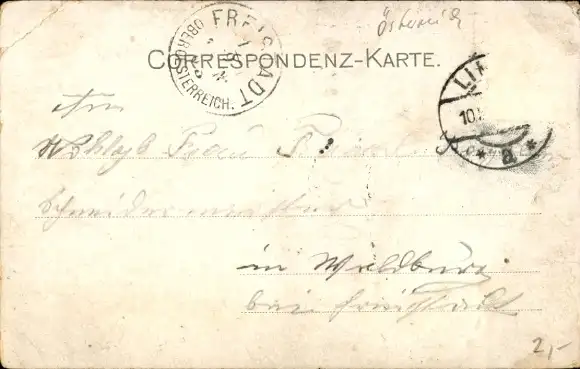 Österreich
CORRESPONDENZ-KARTE.
FREISTADT
OBERÖSTERREICH.
LIN
10.
* a *
An
Wohlgb Frau
Schneidermeisters
in Wildberg
bei Freistadt
2,-